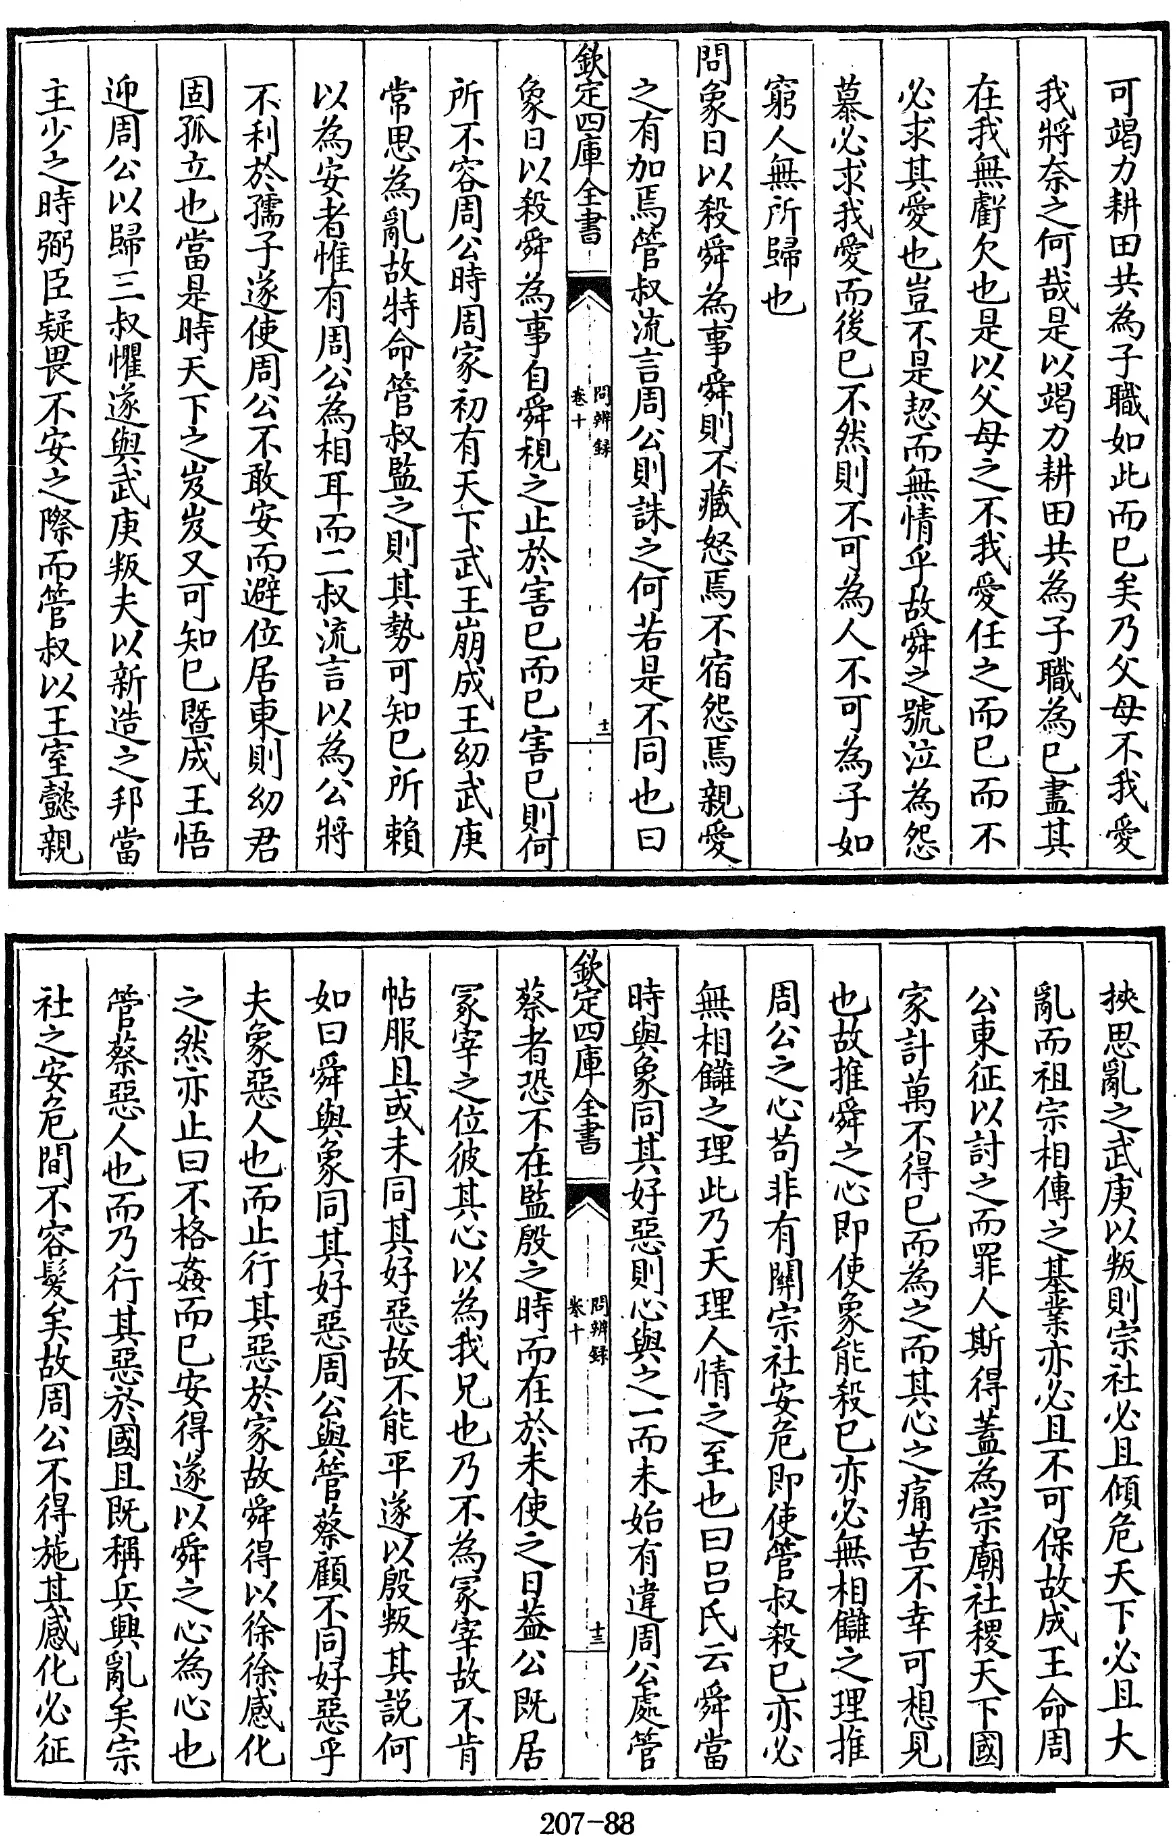 可竭力耕田共為子職如此而已矣乃父母不我愛
我將奈之何哉是以竭力耕田共為子職為已盡其
在我無虧欠也是以父母之不我愛任之而已而不
必求其愛也豈不是恝而無情乎故舜之號泣為怨
慕必求我愛而後已不然則不可為人不可為子如
窮人無所歸也
問象日以殺舜為事舜則不藏怒焉不宿怨焉親愛
之有加焉管叔流言周公則誅之何若是不同也曰
欽定四庫全書
問辨録
卷十
十二
象日以殺舜為事自舜視之止於害已而已害已則何
所不容周公時周家初有天下武王崩成王幼武庚
常思為亂故特命管叔監之則其勢可知已所賴
以為安者惟有周公為相耳而二叔流言以為公將
不利於孺子遂使周公不敢安而避位居東則幼君
固孤立也當是時天下之岌岌又可知已暨成王悟
迎周公以歸三叔懼遂與武庚叛夫以新造之邦當
主少之時弼臣疑畏不安之際而管叔以王室懿親
挾思亂之武庚以叛則宗社必且傾危天下必且大
亂而祖宗相傳之基業亦必且不可保故成王命周
公東征以討之而罪人斯得蓋為宗廟社稷天下國
家計萬不得已而為之而其心之痛苦不幸可想見
也故推舜之心即使象能殺已亦必無相讎之理推
周公之心苟非有關宗社安危即使管叔殺已亦必
無相讎之理此乃天理人情之至也曰呂氏云舜當
時與象同其好惡則心與之一而未始有違周公處管
欽定四庫全書
問辨録
卷十
十三
蔡者恐不在監殷之時而在於未使之日葢公既居
冢宰之位彼其心以為我兄也乃不為冢宰故不肯
帖服且或未同其好惡故不能平遂以殷叛其説何
如曰舜與象同其好惡周公與管蔡顧不同好惡乎
夫象惡人也而止行其惡於家故舜得以徐徐感化
之然亦止曰不格姦而已安得遂以舜之心為心也
管蔡惡人也而乃行其惡於國且既稱兵興亂矣宗
社之安危間不容髮矣故周公不得施其感化必征
207-88